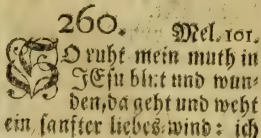 260. Mel. 101.
SO ruht mein muth in
JEsu blut und wun-
den, da geht und weht
ein sanfter liebes-wind: ich